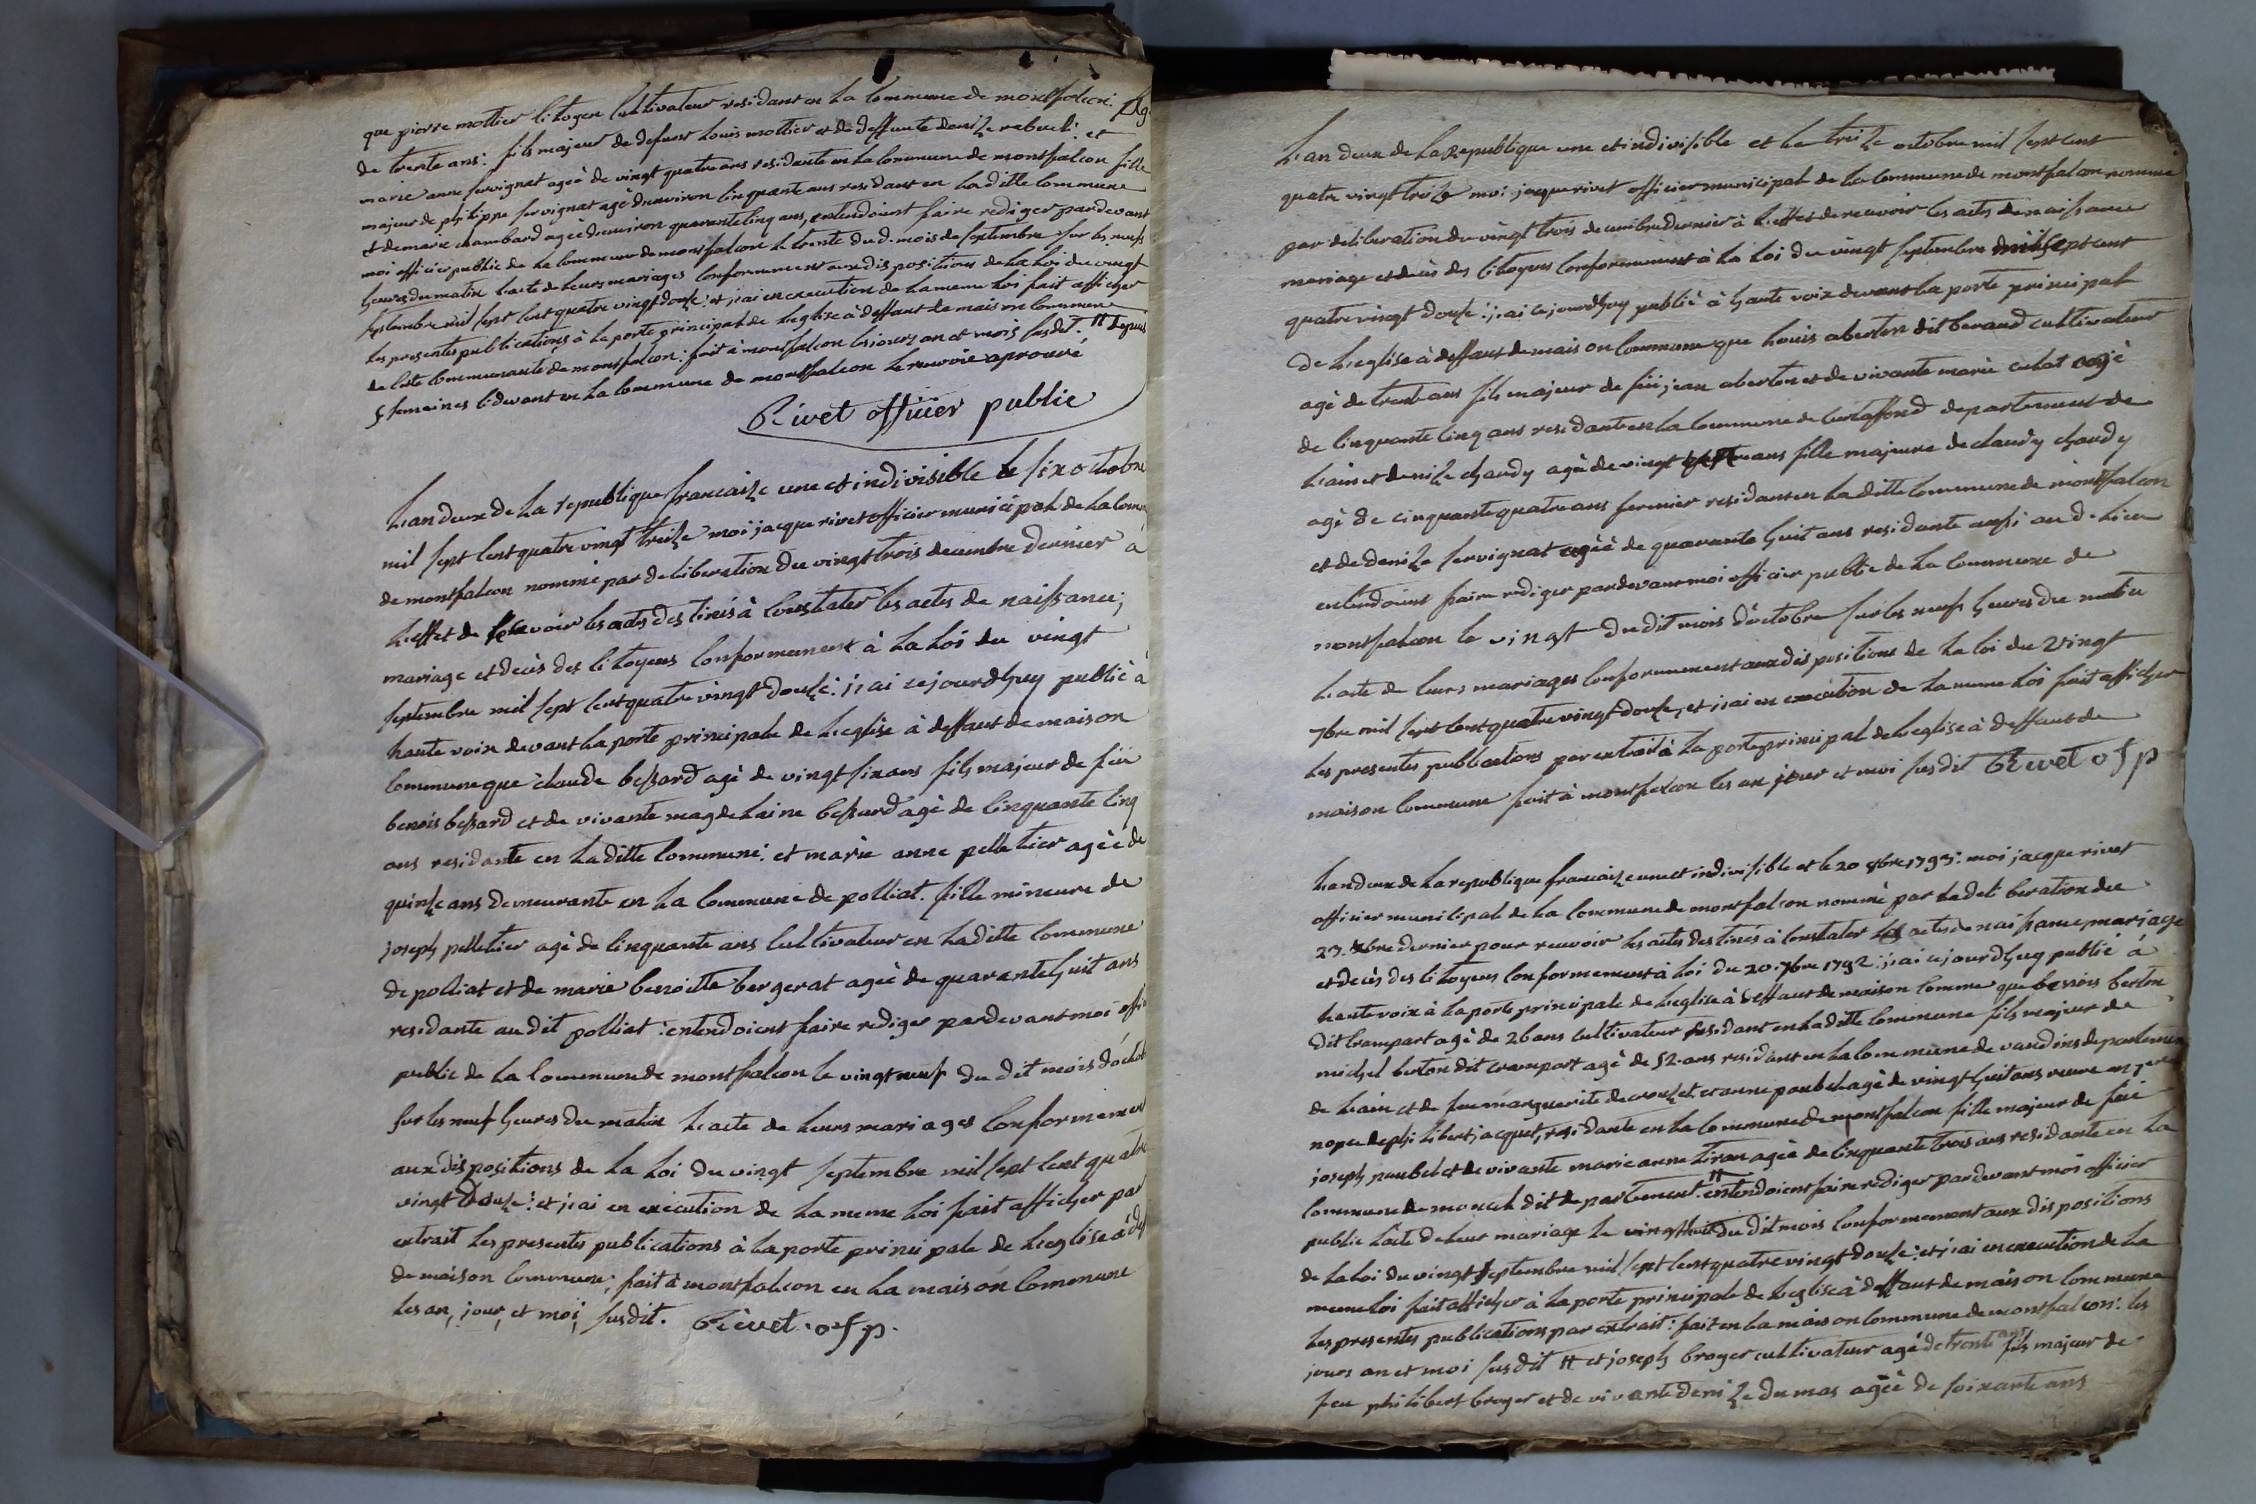 que pierre mottier Citoyen Cultivateur residant en la Commune de montfalcon agé
de trente ans: fils majeur de defunt Louis mottier et de deffunte denize rebuel: et
marie anne servignat ageé de vingt quatre ans residante en la Commune de montfalcon fille
majeur de philippe servignat agé d'environ Cinquante ans residant en la ditte Commune
et de marie chambard ageé d'environ quarante Cinq ans, entendoient faire rediger par devant
moi officier public de la Commune de montfalcon le trente du d. mois de septembre sur les neufs
heures du matin l'acte de leurs mariages Conformement aux dispositions de la loi du vingt
septembre mil sept Cent quatre vingt douze: et j'ai en execution de la meme loi fait afficher
les presentes publications à la porte principal de l'eglise à deffaut de maison Commune
de Cette Communauté de montfalcon: fait à montfalcon les jours an et mois susdit. # depuis
5 semaines Cidevant en la Commune de montfalcon le renvoie aprouvé
Rivet officier public
L'an deux de la republique francaize une et indivisible le six octobre
mil sept Cent quatre vingt treize moi jacque rivet officier municipal de la Comu
de montfalcon nommé par deliberation du vingt trois decembre dernier à
l'effet de recevoir les actes destinés à Constater les actes de naissance;
mariage et decès des Citoyens Conformement à la loi du vingt
septembre mil sept Cent quatre vingt douze: j'ai cejourdhuy publié à
haute voix devant la porte principale de l'eglise à deffaut de maison
Commune que claude bessard agé de vingt six ans fils majeur de feü
benois bessard et de vivante magdelaine bessard agé de Cinquante Cinq
ans residante en la ditte Commune: et marie anne pelletier ageé de
quinze ans demeurante en la Commune de polliat. fille mineure de
joseph pelletier agé de Cinquante ans Cultivateur en la ditte Commune
de polliat et de marie benoitte bergerat ageé de quarante huit ans
residante au dit polliat: entendoient faire rediger pardevant moi offi
public de la Commune de montfalcon le vingt neuf du dit mois d'octob
sur les neuf heures du matin l'acte de leurs mariages Conformemen
aux dispositions de la loi du vingt septembre mil sept Cent quatre
vingt douze: et j'ai en execution de la meme loi fait afficher par
extrait les presentes publications à la porte principale de l'eglise à def
de maison Commune; fait à montfalcon en la maison Commune
les an, jour, et moi, susdit. Rivet. ofp.
L'an deux de la Republique une et indivisible et le treize octobre mil sept cent
quatre vingt treize moi jacque rivet officier municipal de la Commune de montfalcon nommé
par deliberation du vingt trois decembre dernier à l'effet de recevoir les actes de naissance
mariage et decès des Citoyens Conformement à la loi du vingt septembre mil sept cent
quatre vingt douze: j'ai cejourdhuy publié à haute voix devant la porte principal
de l'eglise à deffaut de maison Commune que Louis aberton dit beraud cultivateur
agé de trente ans fils majeur de feü jean aberton et de vivante marie catat agé
de Cinquante Cinq ans residante en la Commune de Curtaffond departement de
l'ain et denize chaudy ageé de vingt ans fille majeure de claudy chaudy
agé de cinquante quatre ans fermier residant en la ditte Commune de montfalcon
et de denize servignat ageé de quarante huit ans residante aussi au d. lieu
entendoient faire rediger pardevant moi officier public de la Commune de
montfalcon le vingt du dit mois d'octobre sur les neufs heures du matin
l'acte de leurs mariages Conformement aux dispositions de la loi du vingt
7bre mil sept Cent quatre vingt douze, et j'ai en execution de la meme loi fait afficher
les presentes publications par extrait à la porte principal de l'eglise à deffaut de
maison Commune fait à montfalcon les an jour et moi susdit Rivet ofp
L'an deux de la republique francaize une et indivisible et le 20 8bre 1793: moi jacque rivet
officier municipal de la Commune de montfalcon nommé par la deliberation du
23. xbre dernier pour recevoir les actes destinés à Constater les actes de naissance mariage
et decès des Citoyens Conformement à loi du 20. 7bre 1792: j'ai cejourdhuy publié à
haute voix à la porte principale de l'eglise à deffaut de maison Comme que benois berton
dit trampart agé de 26 ans Cultivateur residant en la ditte Commune fils majeur de
michel berton dit trampart agé de 52. ans residant en la Commune de vandins departement
de l'ain et de feue marguerite decrozet et anne paubel agé de vingt huit ans veuve en
nope de philibert jacquet, residante en la Commune de montfalcon fille majeur de feü
joseph paubel et de vivante marie anne tiran ageé de Cinquante trois ans residante en la
Commune de moncel dit departement. # entendoient faire rediger pardevant moi officier
public l'acte de leur mariage le vingt huit du dit mois Conformement aux dispositions
de la loi du vingt septembre mil sept Cent quatre vingt douze: et j'ai en execution de la
meme loi fait afficher à la porte principale de l'eglise à deffaut de maison Commune
les presentes publications par extrait: fait en la maison Commune de montfalcon: les
jours an et moi susdit # et joseph broyer cultivateur agé de trente ans fils majeur de
feu philibert broyer et de vivante denize dumas ageé de soixante ans